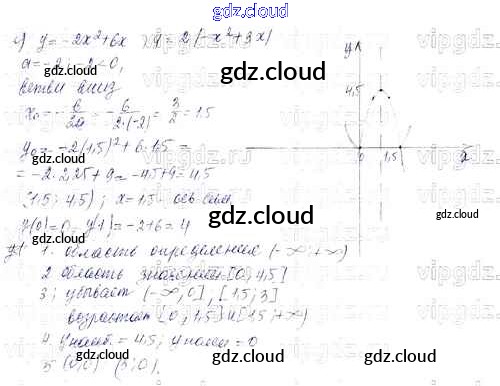 gdz.cloud
c) y = -2x² + 6x y = 2(-x² + 3x)
a = -2; -2 < 0,
ветви вниз
x₀ = -b/2a = -6/2·(-2) = 3/2 = 1.5
y₀ = -2(1,5)² + 6·1,5 =
= -2·2,25 + 9 = -4,5 + 9 = 4,5
(1,5; 4,5); x = 1,5 - ось сим.
y(0) = 0 y(1) = -2 + 6 = 4
1. область определения (-∞; +∞)
2 область значений [0; 4,5]
3; убывает (-∞, 0], [1,5; 3]
возрастает [0; 1,5] и [1,5; +∞)
4. y наиб. = 4,5; y наим = 0
5 (0;0) (3;0).
y
4,5
0
1,5
x
gdz.cloud
gdz.cloud
gdz.cloud
gdz.cloud
gdz.cloud
gdz.cloud
vipgdz.cloud